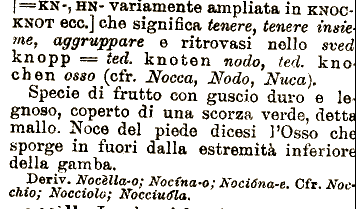 [=KN-, HN- variamente ampliata in KNOC-
KNOT ecc.] che significa tenere, tenere insie-
me, aggruppare e ritrovasi nello sved
knopp = ted. knoten nodo, ted. kno-
chen osso (cfr. Nocca, Nodo, Nuca).
Specie di frutto con guscio duro e le-
gnoso, coperto di una scorza verde, detta
mallo. Noce del piede dicesi l'Osso che
sporge in fuori dalla estremità inferiore
della gamba.
Deriv. Nocèlla-o; Nocína-o; Nocióna-e. Cfr. Noc-
chio; Nocciolo; Nocciuóla.